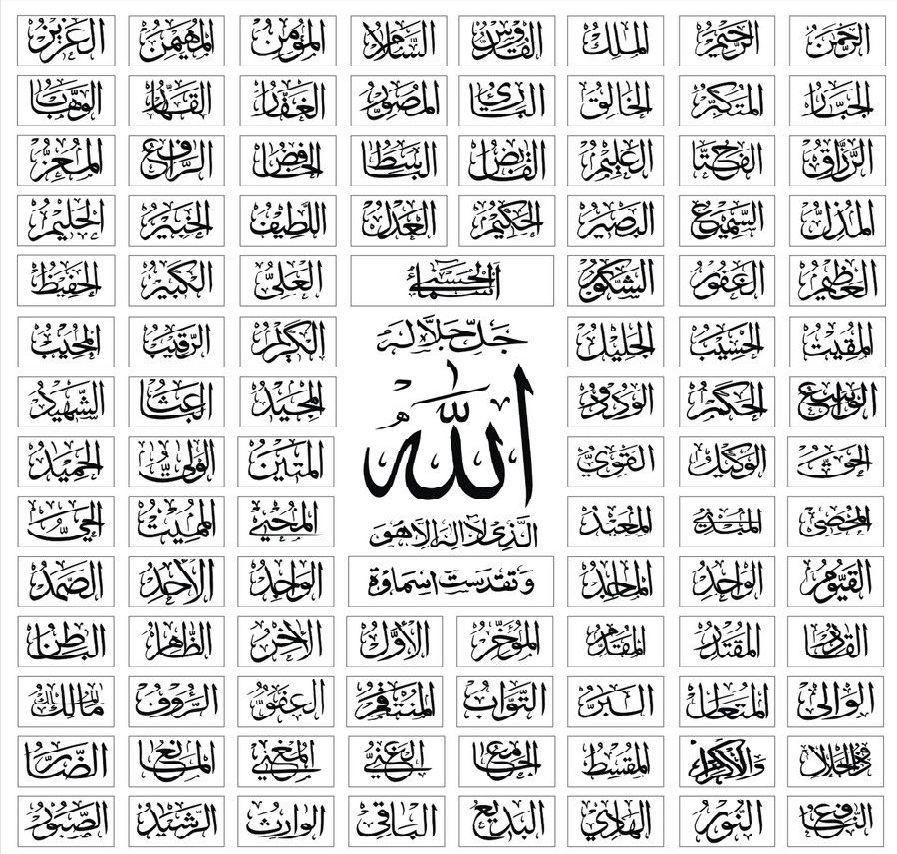 الرحمن الرحيم الملك القدوس السلام المؤمن المهيمن العزيز
الجبار المتكبر الخالق البارئ المصور الغفار القهار الوهاب
الرزاق الفتاح العليم القابض الباسط الخافض الرافع المعز
المذل السميع البصير الحكيم العدل اللطيف الخبير الحليم
العظيم الغفور الشكور اسماء الحسنى العلي الكبير الحفيظ
المقيت الحسيب الجليل جل جلاله الكريم الرقيب المجيب
الواسع الحكيم الودود الله المجيد الباعث الشهيد
الحق الوكيل القوي المتين الولي الحميد
المحصي المبدئ المعيد الذي لا اله الا هو المحيي المميت الحي
القيوم الواجد الماجد وتقدست اسماوه الواحد الاحد الصمد
القادر المقتدر المقدم المؤخر الاول الاخر الظاهر الباطن
الوالي المتعال البر التواب المنتقم العفو الرؤف مالك الملك
ذوالجلال والاكرام المقسط الجامع الغني المغني المانع الضار
النافع النور الهادي البديع الباقي الوارث الرشيد الصبور